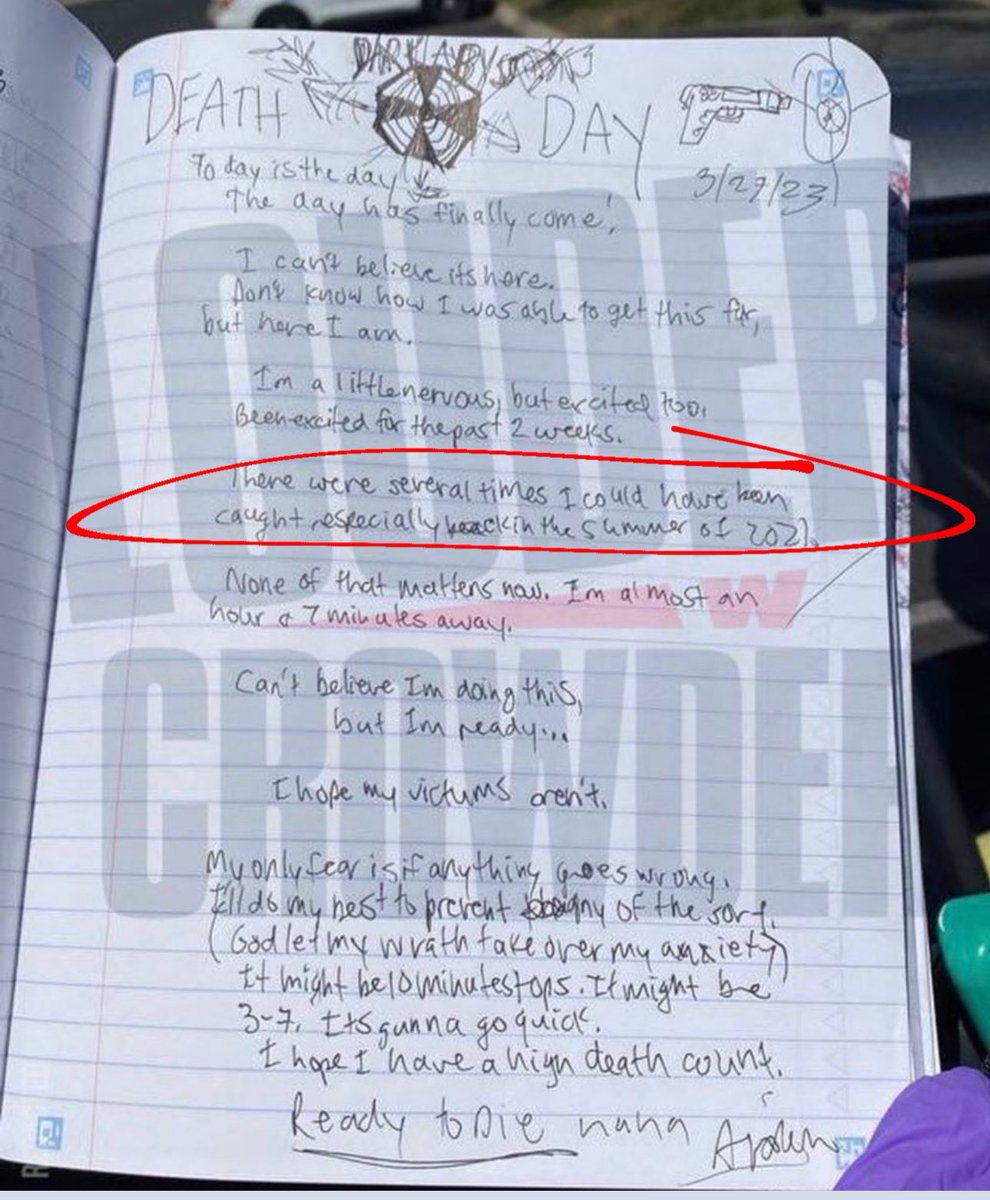 DEATH DAY
3/27/23
To day is the day
The day has finally come!
I can't believe its here.
Don't know how I was able to get this far,
but here I am.
I'm a little nervous, but excited too.
Been excited for the past 2 weeks.
There were several times I could have been
caught, especially back in the summer of 2021.
None of that matters now. Im almost an
hour & 7 minutes away.
Can't believe Im doing this,
but Im ready...
I hope my victums aren't.
My only fear is if anything goes wrong.
I'll do my best to prevent any of the sort.
(God let my wrath take over my anxiety)
It might be 10 minutes tops. It might be
3-7. Its gunna go quick.
I hope I have a high death count.
Ready to Die haha
LOUDER
W
CROWDER